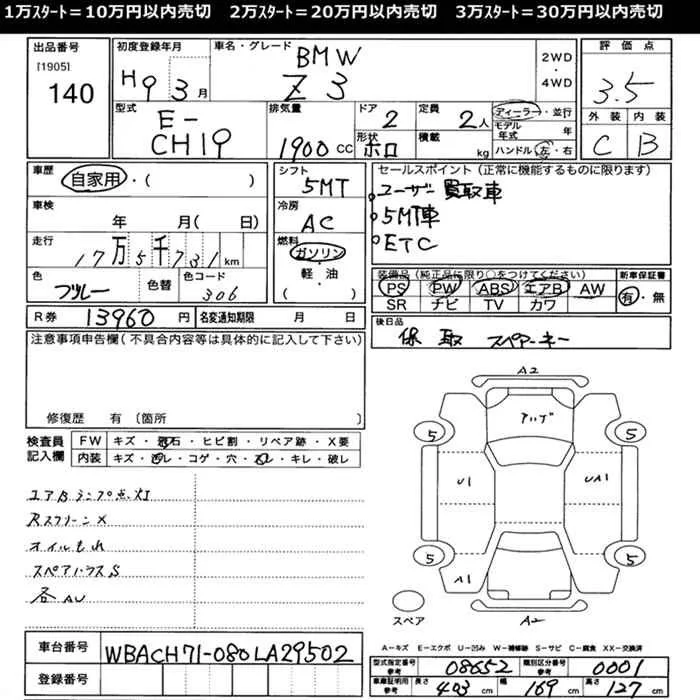 1万ｽﾀｰﾄ＝10万円以内売切　2万ｽﾀｰﾄ＝20万円以内売切　3万ｽﾀｰﾄ＝30万円以内売切
出品番号
[1905]
140
初度登録年月
H9 3月
車名・グレード
BMW
Z3
2WD
・
4WD
評価点
3.5
外装 内装
C B
型式
E-
CH19
排気量
1900 CC
ドア
2
形状
ホロ
定員
2人
積載
kg
ディーラー・並行
モデル年式 年
ハンドル 左・右
車歴
自家用・( )
車検
年 月( 日)
走行
17万5千731km
色
ブルー
色替
色コード
306
シフト
5MT
冷房
AC
燃料
ガソリン
・
軽・油
( )
セールスポイント（正常に機能するものに限ります）
ユーザー買取車
5MT車
ETC
装備品（純正品に限り○をつけてください）
PS PW ABS エアB AW
SR ナビ TV カワ
新車保証書
有・無
R券 13960円
名変通知期限 月 日
後日品
保 取 スペアーキー
注意事項申告欄（不具合内容等は具体的に記入して下さい）
修復歴 有〔箇所
検査員
記入欄
FW キズ・飛石・ヒビ割・リペア跡・X要
内装 キズ・汚レ・コゲ・穴・スレ・キレ・破レ
エアBランプ点灯
Rスクリーン×
オイルもれ
各AU
A2
アハゲ
5
5
U1
UA1
5
5
A1
スペア
A2
A－キズ E－エクボ U－凹み W－補修跡 S－サビ C－腐食 XX－交換済
車台番号
WBACH71-080LA29502
登録番号
型式指定番号
参考
08652
類別区分番号
参考
0001
車庫証明用
参考
長さ 403 cm 幅 169 cm 高さ 127 cm